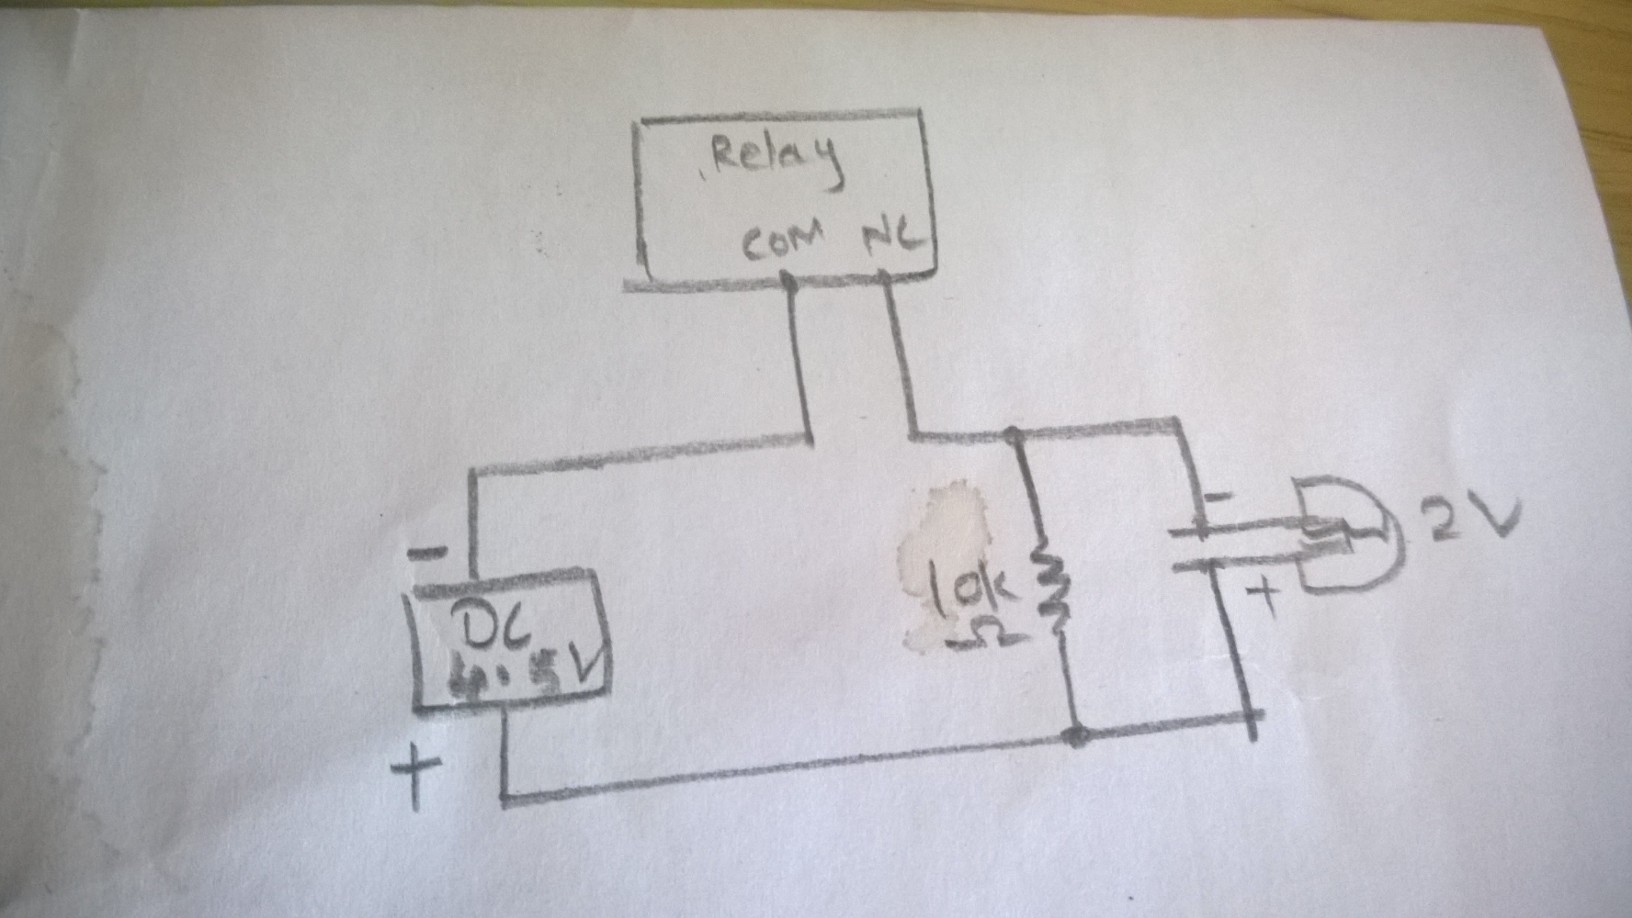 Relay
COM NC
-
DC
4.5V
+
10k
Ω
-
+
2V